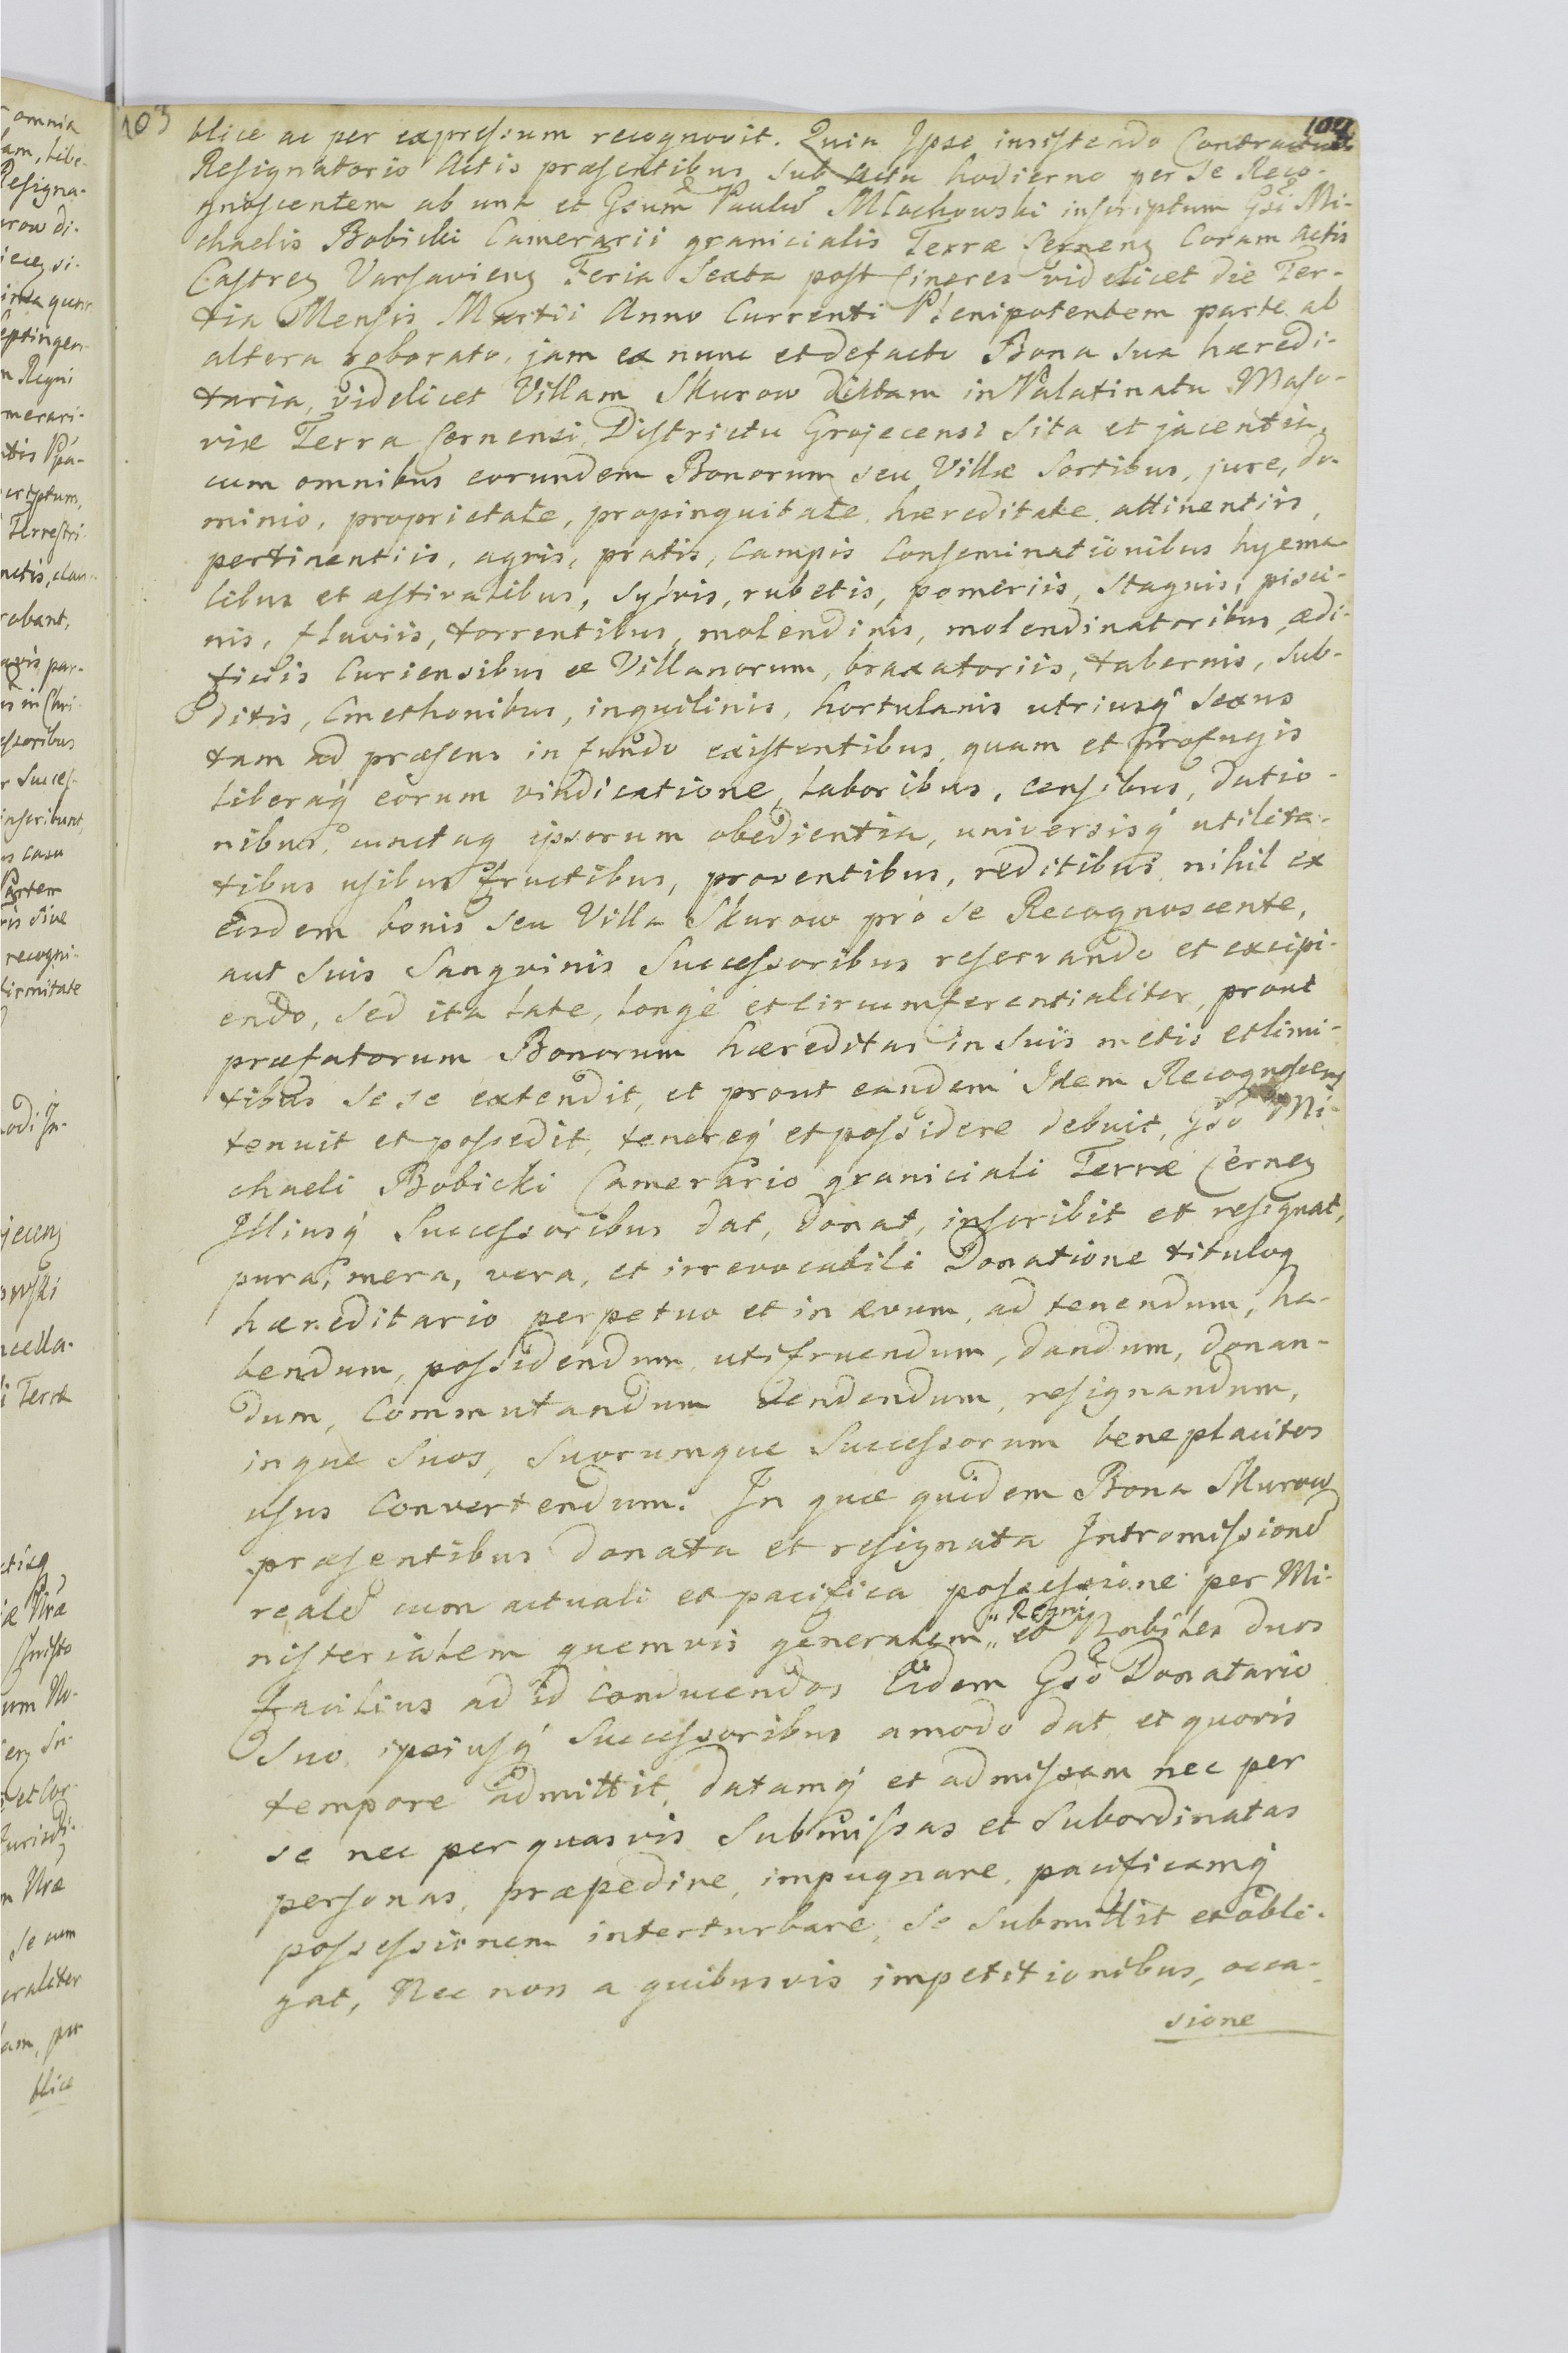 103
104
blice ac per expressum recognovit. Quia Ipse insistendo Contractui
Resignatorio Actis præsentibus sub actu hodierno per se Reco-
gnoscentem ab una et Gsum Paulũ Młochowski inscriptum Gsi Mi-
chaelis Bobicki Camerarii granicialis Terræ Cernen Coram Actis
Castren Varsavien Feria Sexta post Cineres videlicet die Ter-
tia Mensis Martii Anno Currenti Plenipotentem parte ab
altera roborato, jam ex nunc et de facto Bona sua hæredi-
taria, videlicet Villam Skurow dictam in Palatinatu Maso-
viæ Terra Cernensi, Districtu Grojecensi sita et jacentia,
cum omnibus eorundem Bonorum seu Villæ Sortibus, jure, do-
minio, proprietate, propinquitate, hæreditate, attinentiis,
pertinentiis, agris, pratis, campis Conseminationibus hyema-
libus et æstivalibus, sylvis, rubetis, pomeriis, stagnis, pisci-
nis, fluviis, torrentibus, molendinis, molendinatoribus, ædi-
ficiis Curiensibus et Villanorum, braxatoriis, tabernis, sub-
ditis, Cmethonibus, inquilinis, hortulanis utriusq́ sexus
tam ad præsens in fundo existentibus, quam et profugis
liberaq́ eorum vindicatione, laboribus, censibus, datio-
nibus, cunctaq ipsorum obedientia, universisq́ utilita-
tibus usibus fructibus, proventibus, reditibus, nihil ex
eisdem bonis seu Villa Skurow pro se Recognoscente,
aut suis Sangvinis Successoribus reservando et excipi-
endo, sed ita late, longe et circumferentialiter, prout
præfatorum Bonorum hæreditas in suis metis et limi-
tibus sese extendit, et prout eandem Idem Recognoscens
tenuit et possedit, tenereq́ et possidere debuit, Gso Mi-
chaeli Bobicki Camerario graniciali Terræ Cernen
Illiusq́ Successoribus dat, donat, inscribit et resignat,
pura, mera, vera, et irrevocabili Donatione tituloq
hæreditario perpetuo et in ævum, ad tenendum, ha-
bendum, possidendum, utifruendum, dandum, donan-
dum, Commutandum vendendum, resignandum,
inque suos, suorumque Successorum beneplacitos
usus Convertendum. In quæ quidem Bona Skurow
præsentibus donata et resignata Intromissionẽ
realẽ cum actuali et pacifica possessione per Mi-
nisterialem quemvis generalem " Regni et Nobiles duos
facilius ad id conducendos Eidem Gso Donatario
Suo ipsiusq́ Successoribus amodo dat et quovis
tempore admittit, datamq́ et admissam nec per
se nec per quasvis submissas et subordinatas
personas, præpedire, impugnare, pacificamq́
possessionem interturbare, se submittit et obli-
gat, Nec non a quibusvis impetitionibus, occa-
sione